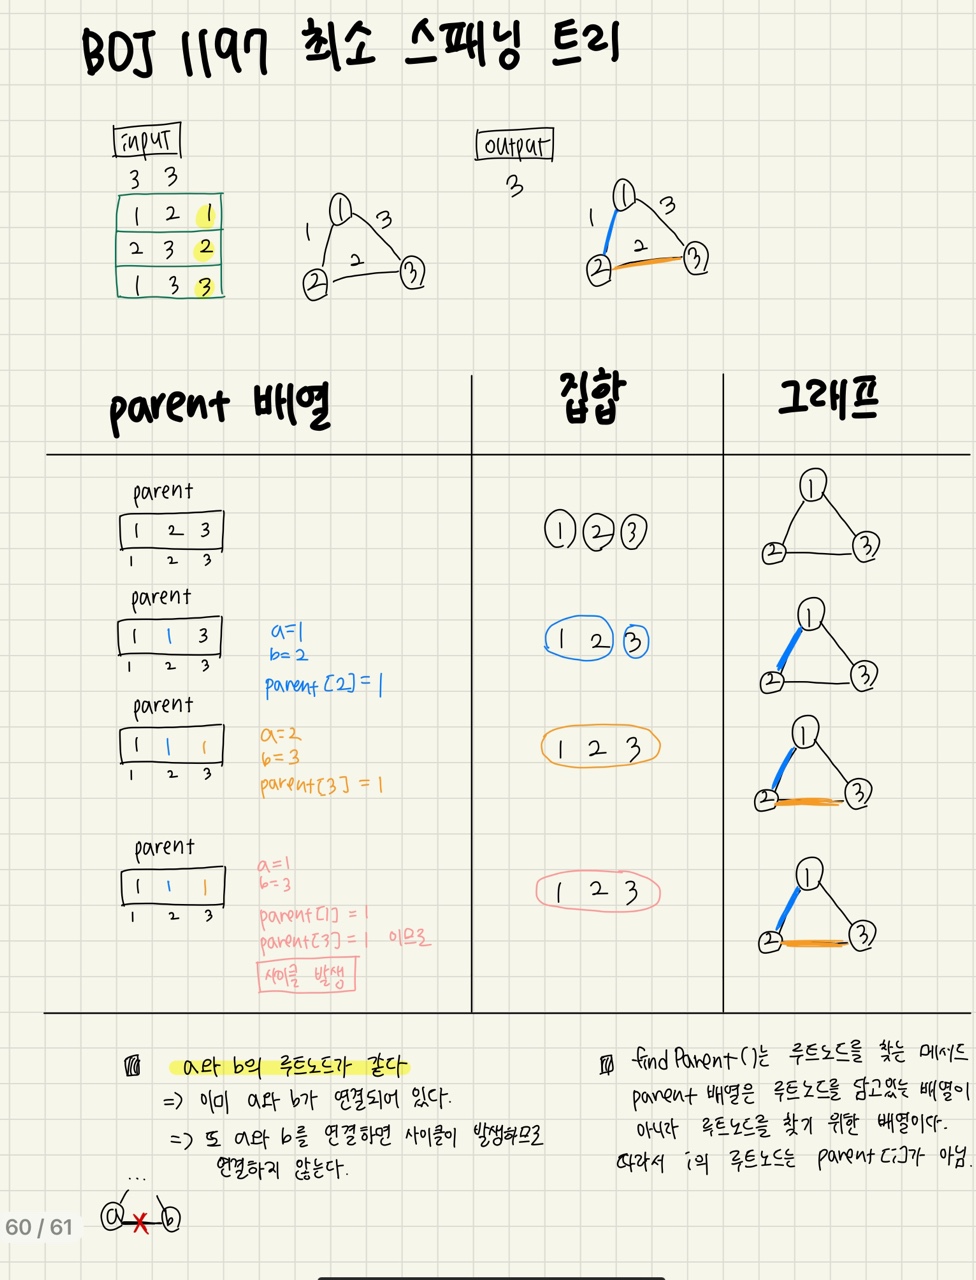 BOJ 1197 최소 스패닝 트리
input
3 3
1 2 1
2 3 2
1 3 3
1
3
2
1
2
3
output
3
1
3
2
1
2
3
parent 배열
집합
그래프
parent
1 2 3
1 2 3
1 2 3
1
2
3
parent
1 1 3
1 2 3
a=1
b=2
parent[2]=1
1 2 3
1
2
3
parent
1 1 1
1 2 3
a=2
b=3
parent[3]=1
1 2 3
1
2
3
parent
1 1 1
1 2 3
a=1
b=3
parent[1]=1
parent[3]=1 이므로
사이클 발생
1 2 3
1
2
3
a와 b의 루트노드가 같다
=> 이미 a와 b가 연결되어 있다.
=> 또 a와 b를 연결하면 사이클이 발생하므로
연결하지 않는다.
...
a X b
findParent()는 루트노드를 찾는 메서드
parent 배열은 루트노드를 담고있는 배열이
아니라 루트노드를 찾기 위한 배열이다.
따라서 i의 루트노드는 parent[i]가 아님.
60 / 61